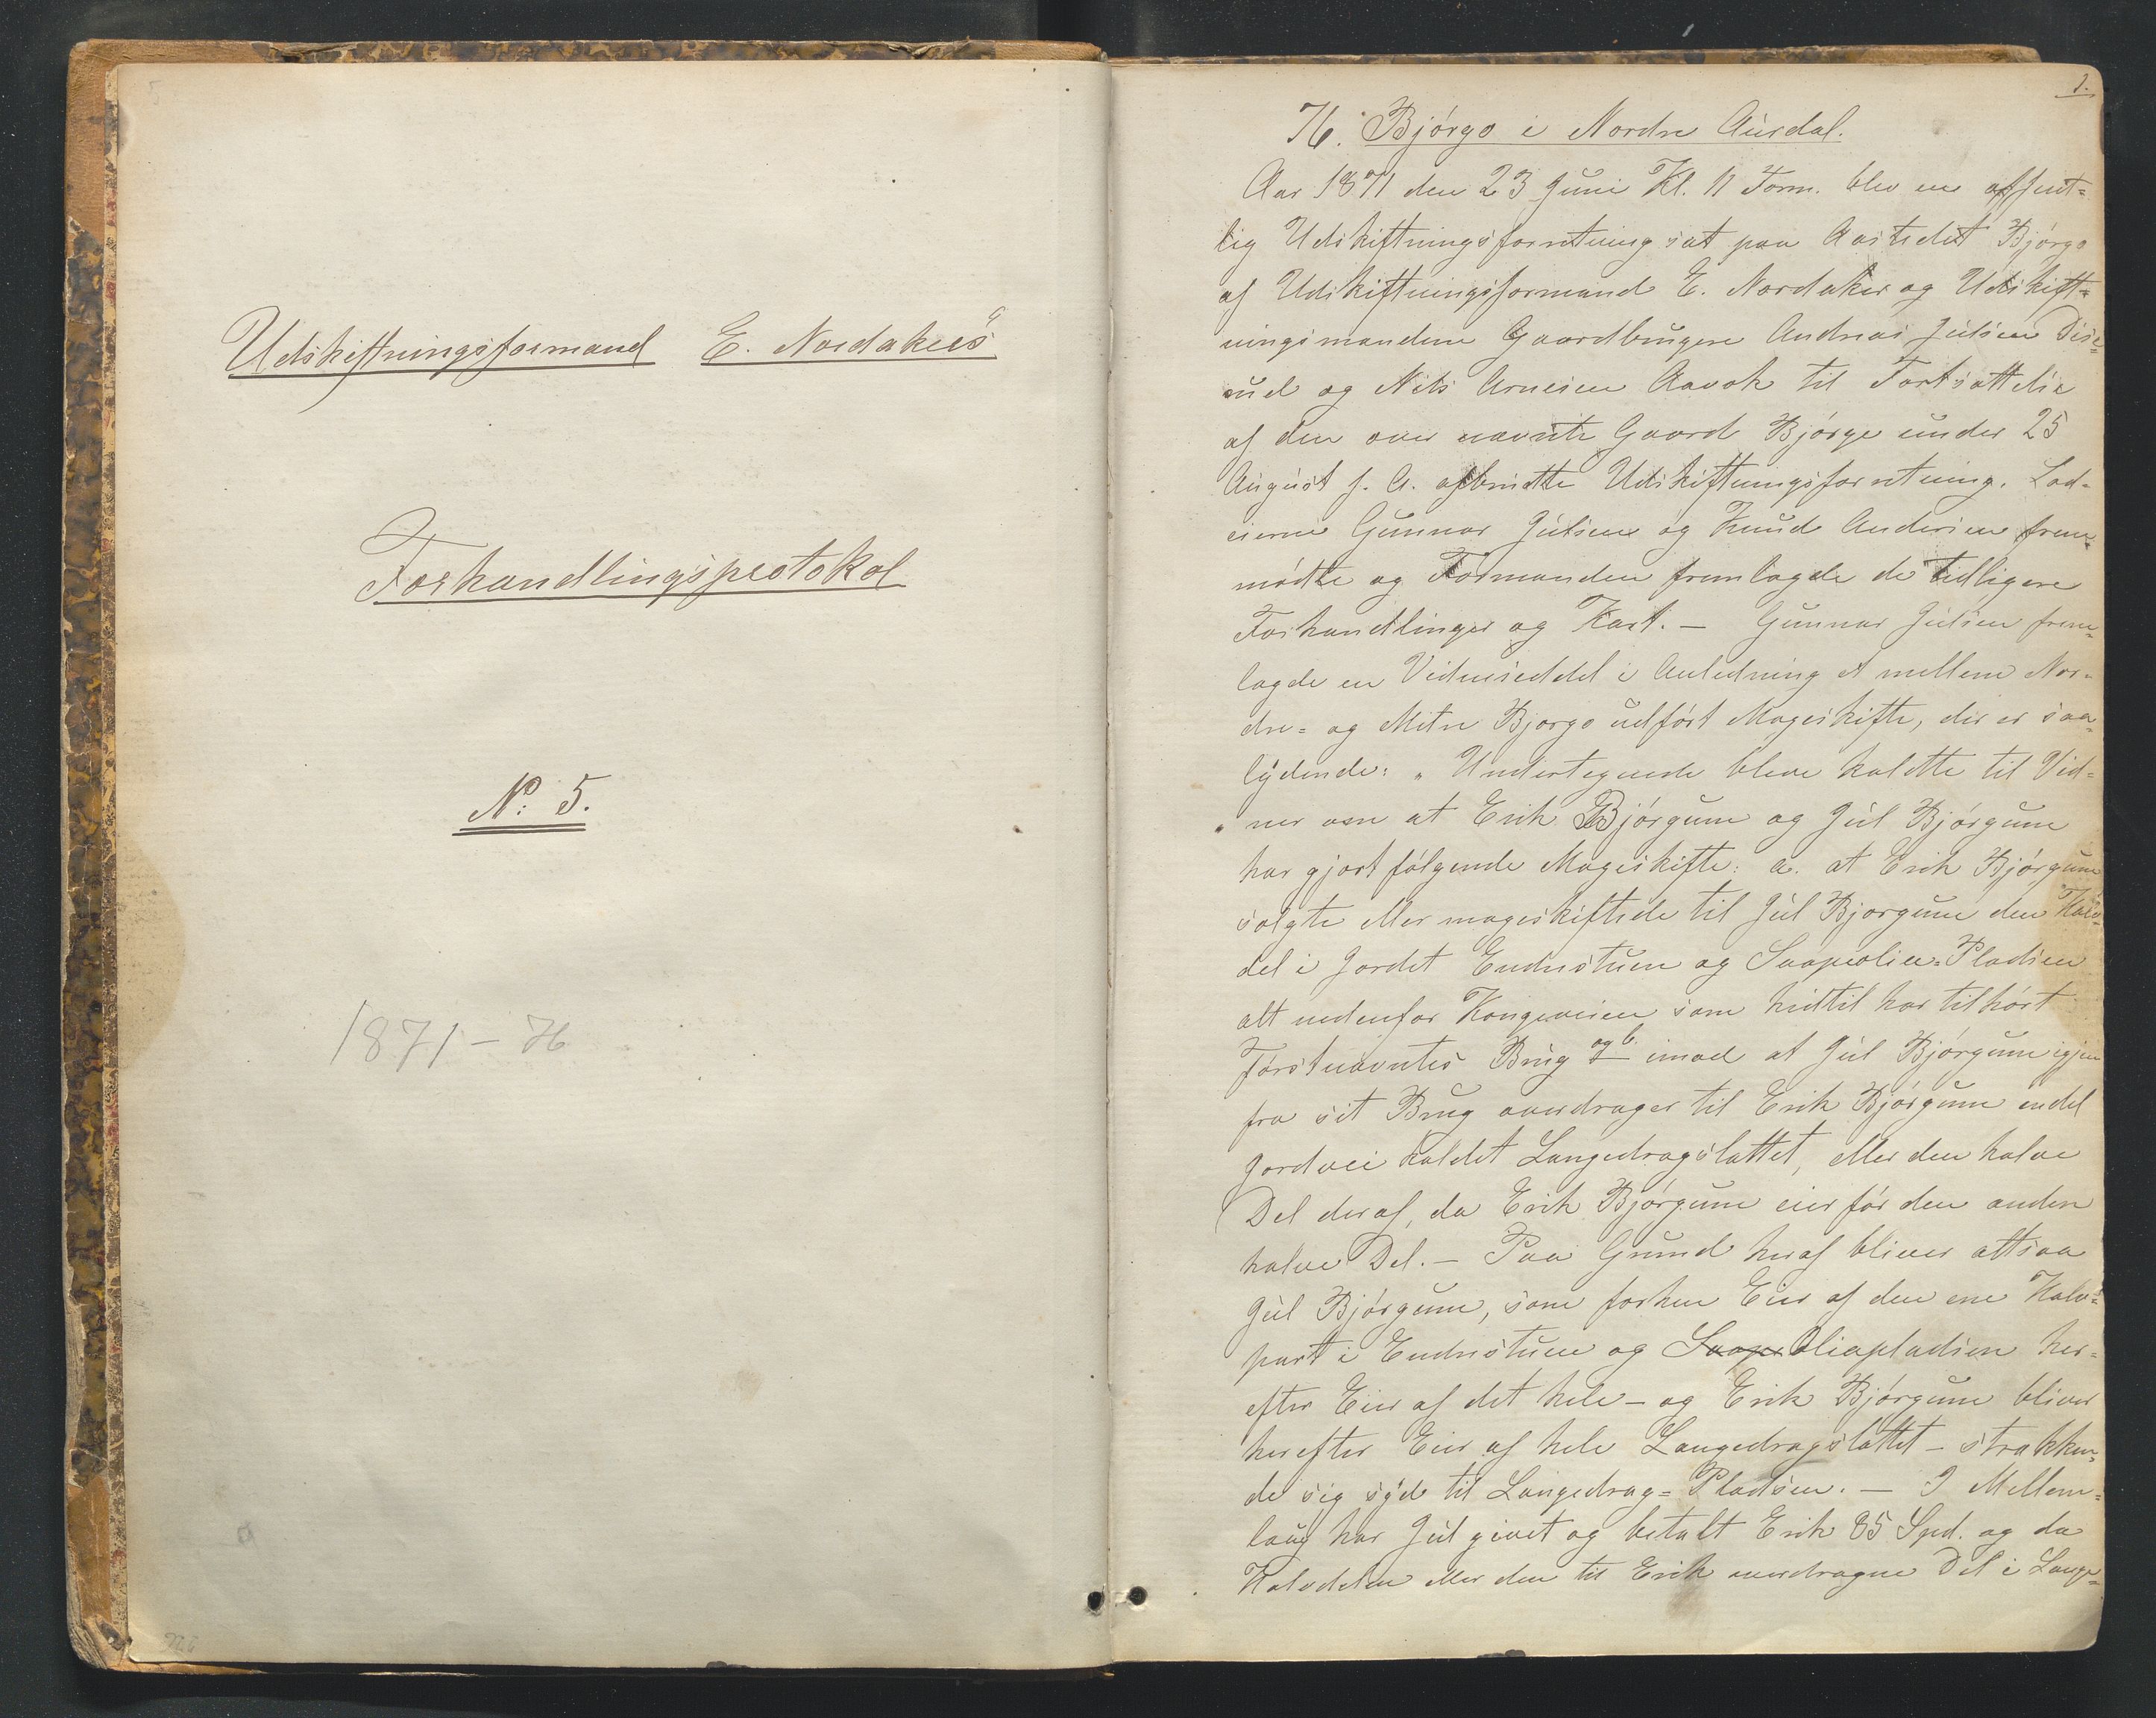 5
Udskiftningsformand E. Nordakers
Forhandlingsprotokol
No. 5.
1871 – 76
1.
76. Bjørgo i Nordre Aurdal.
Aar 1871 den 23 Juni Kl. 11 Form. blev en offent=
lig Udskiftningsforretning sat paa Aastedet Bjørgo
af Udskiftningsformand E. Nordaker og Udskift=
ningsmændene Gaardbrugere Andreas Julsen Dise=
rud og Nils Arnesen Aavok til Fortsættelse
af den over nævnte Gaard Bjørgo under 25
August f. A. afbrudte Udskiftningsforretning. Lod=
eierne Gunnar Julsen og Knud Andersen frem=
mødte og Formanden fremlagde de tidligere
Forhandlinger og Kart. – Gunnar Julsen frem=
lagde en Vidneseddel i Anledning et mellem Nor=
dre= og Mitre Bjørgo udført Mageskifte, der er saa=
lydende: „Undertegnede bleve kaldte til Vid=
„ner om at Erik Bjørgum og Jul Bjørgum
har gjort følgende Mageskifte: a. at Erik Bjørgum
solgte eller mageskiftede til Jul Bjørgum den Halv=
del i Jordet Endrestuen og Pladsen
alt nedenfor Kongeveien som hidtil har tilhørt
Førstnævntes Brug og b. imod at Jul Bjørgum igjen
fra sit Brug overdrager til Erik Bjørgum endel
Jordvei kaldet Langedragslættet, eller den halve
Del deraf, da Erik Bjørgum eier før den anden
halve Del. – Paa Grund heraf bliver altsaa
Jul Bjørgum, som forhen Eier af den ene Halv=
part i Endrestuen og Oliapladsen her=
efter Eier af det hele – og Erik Bjørgum bliver
herefter Eier af hele Langedragslættet – strækken=
de sig syd til Langedrag=Pladsen. – I Mellem=
laug har Jul givet og betalt Erik 85 Spd. og da
Halvdelen eller den til Erik overdragne Del i Lange=